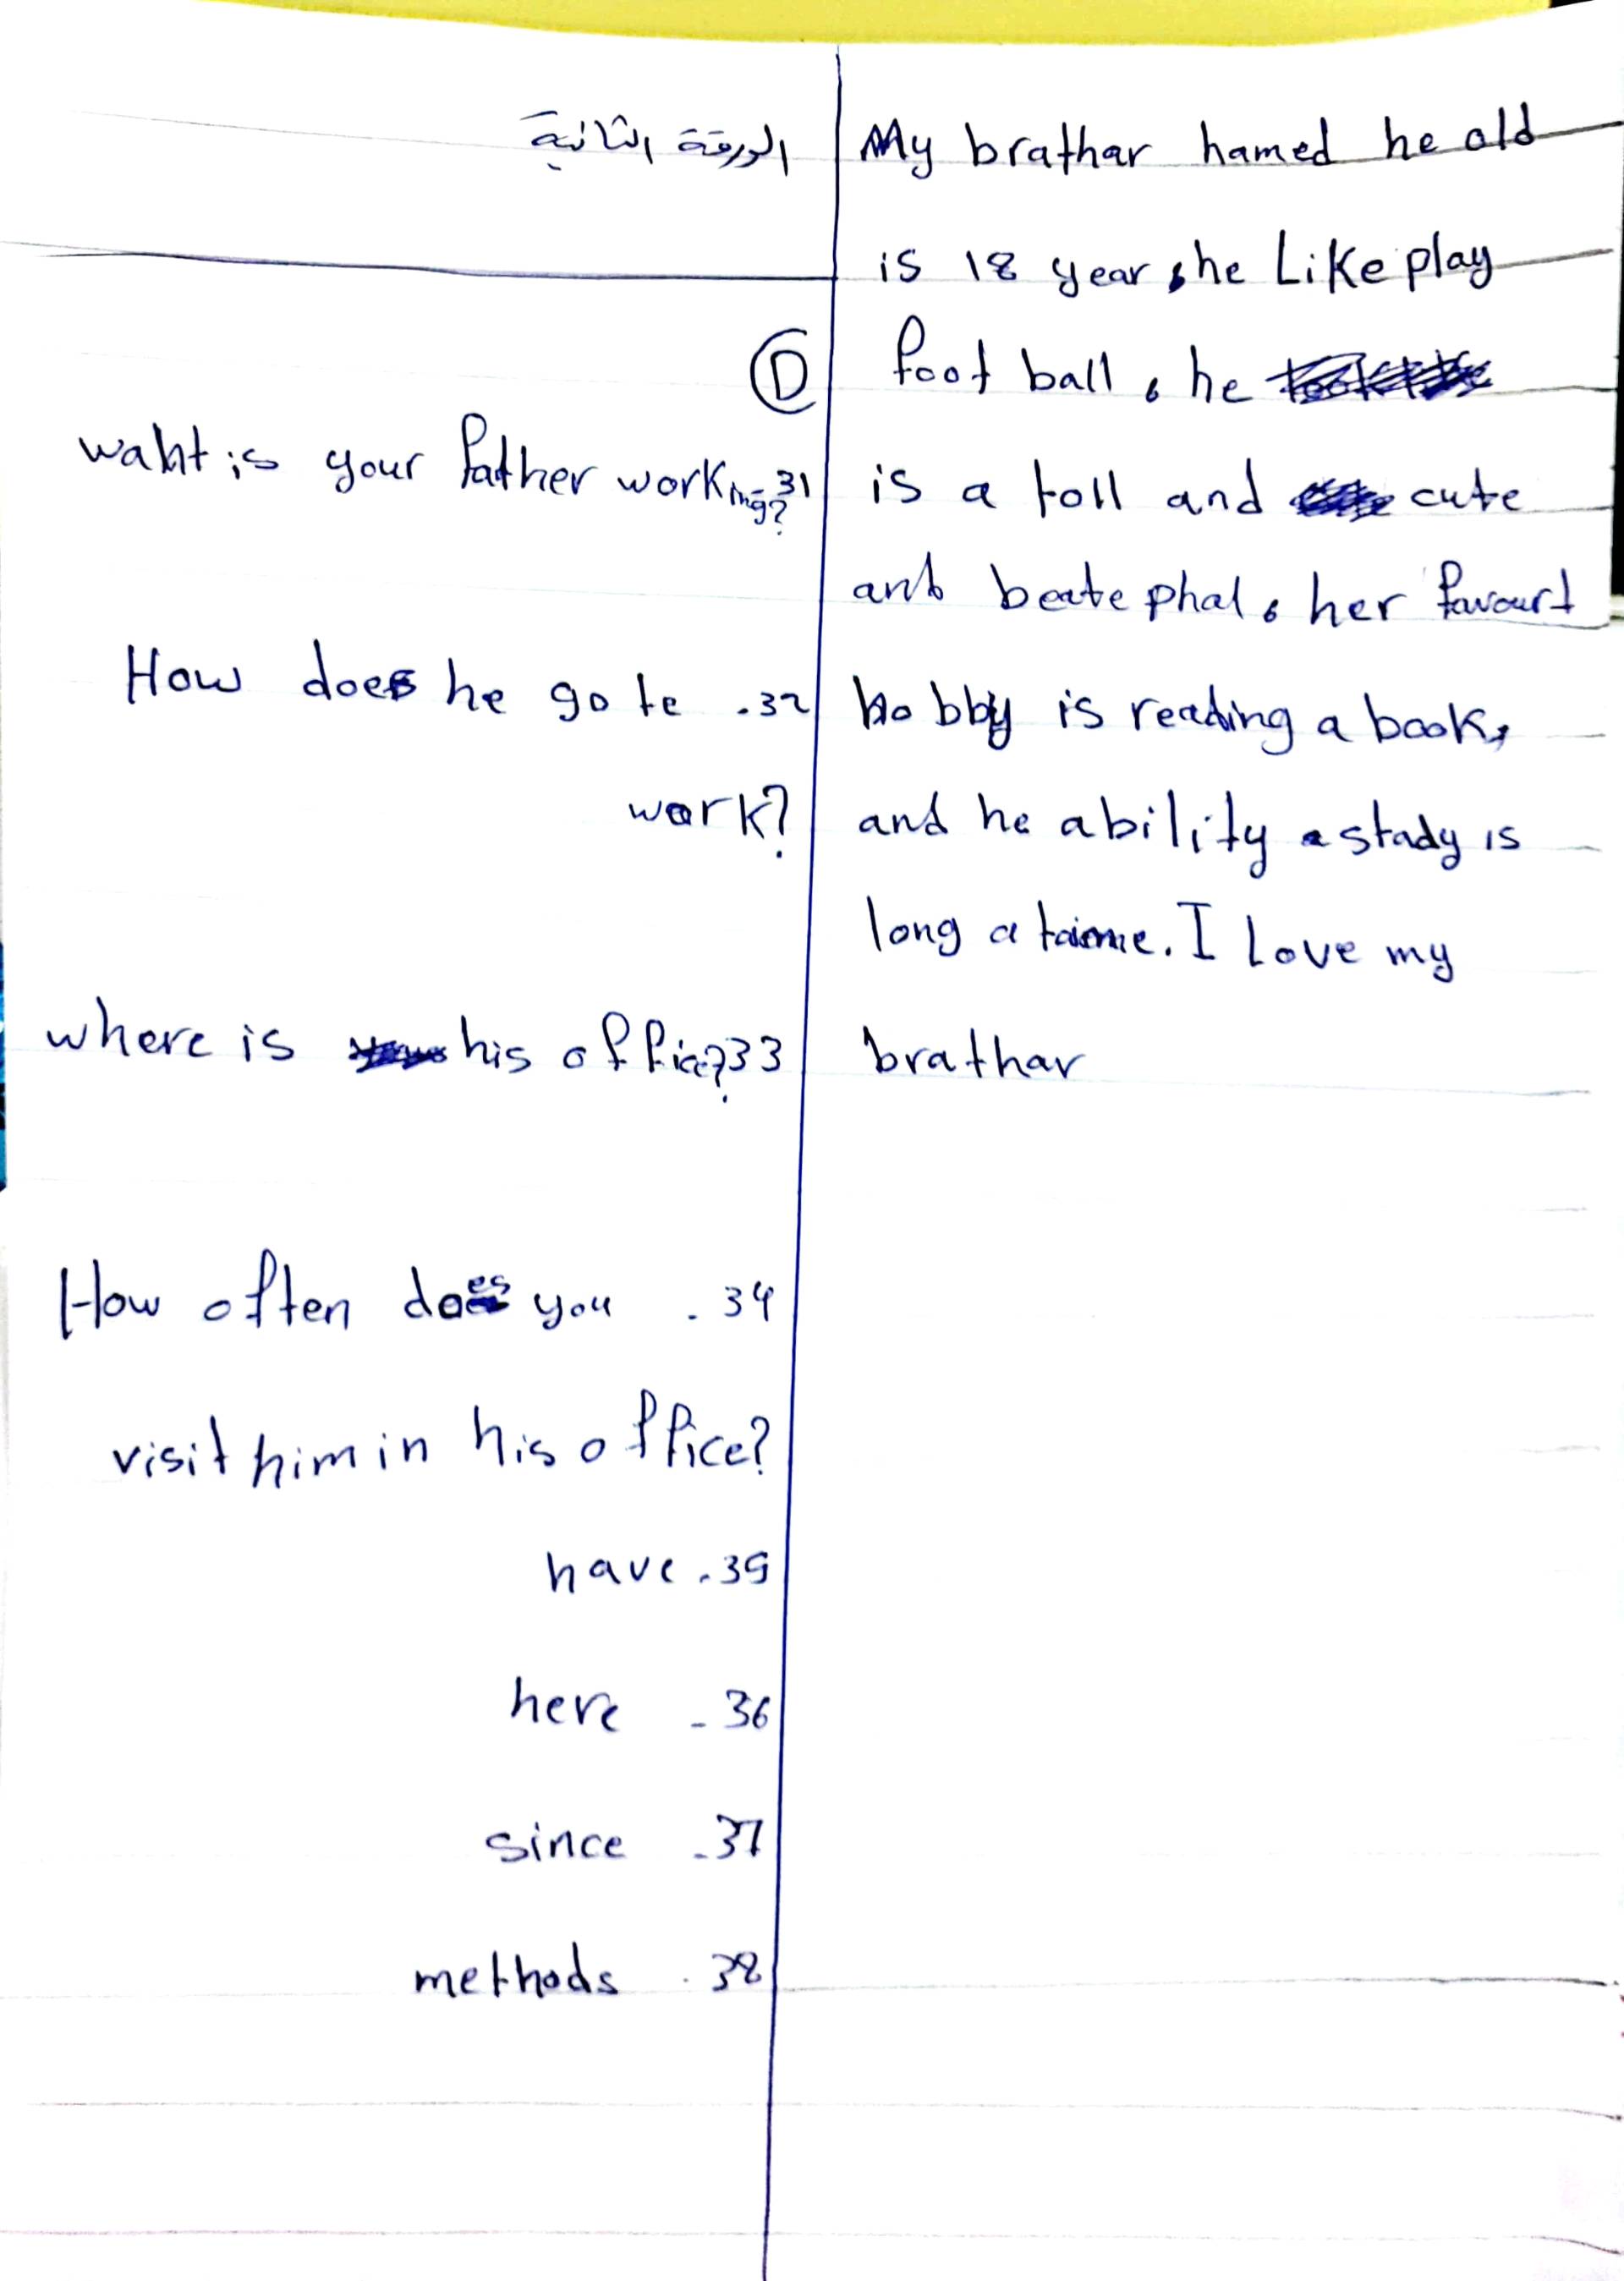 الورقة الثانية
D
waht is your father working? -31
How does he go te .32
work?
where is his office? 33
How often does you . 34
visit him in his office?
have .35
here - 36
since -37
methods . 38
My brathar hamed he old
is 18 year, he Like play
foot ball, he
is a toll and cute
anb beatephal, her favourt
hobby is reading a book,
and he ability a stady is
long a taime. I Love my
brathar